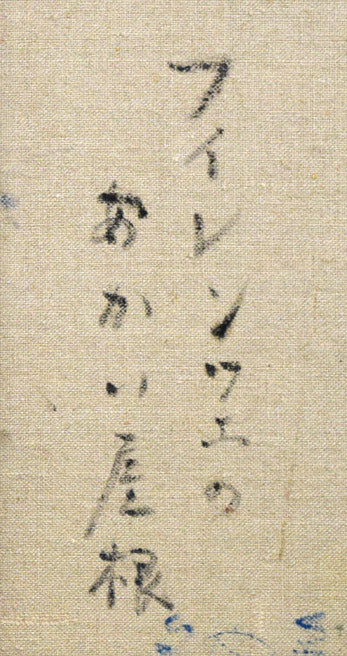 フイレンツエの
あかい屋根